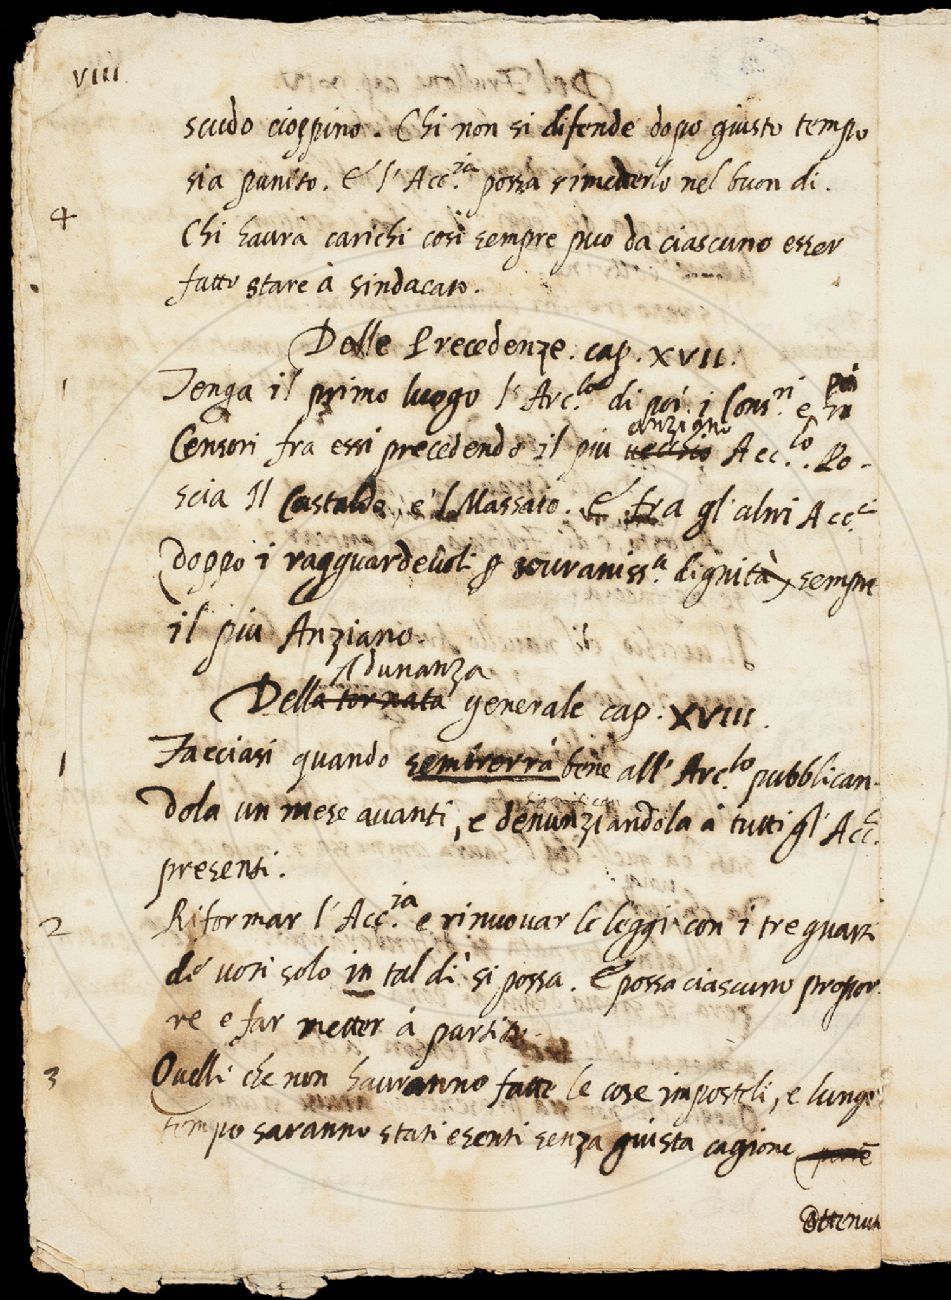 VIII
scudo cioppino. Chi non si difende dopo giusto tempo
sia punito. E l'Acc.ia possa rimetterlo nel buon di.
4 Chi haurà carichi così sempre puo da ciascuno esser
fatto stare à sindacato.
Delle Precedenze. cap. XVII.
1 Tenga il primo luogo l'Arc.lo di poi i Cons.ri e poi
anziano
Censori fra essi precedendo il piu vecchio Acc.co. Po-
scia Il Castaldo, e 'l Massaio. E fra gl'altri Acc.ci
doppo i ragguardevoli p souraniss.a dignità, sempre
il piu Anziano.
Adunanza
Della tornata generale cap. XVIII.
1 Facciasi quando sembrerrà bene all'Arc.lo pubblican-
dola un mese auanti, e denunziandola à tutti gl'Acc.
presenti.
2 Riformar l'Acc.ia e rinuouar le leggi con i tre quarti
de uoti solo in tal dì si possa. E possa ciascuno propor-
re e far metter à partito.
3 Quelli che non hauranno fatte le cose imposteli, e lungo
tempo saranno stati esenti senza giusta cagione
Ottenut